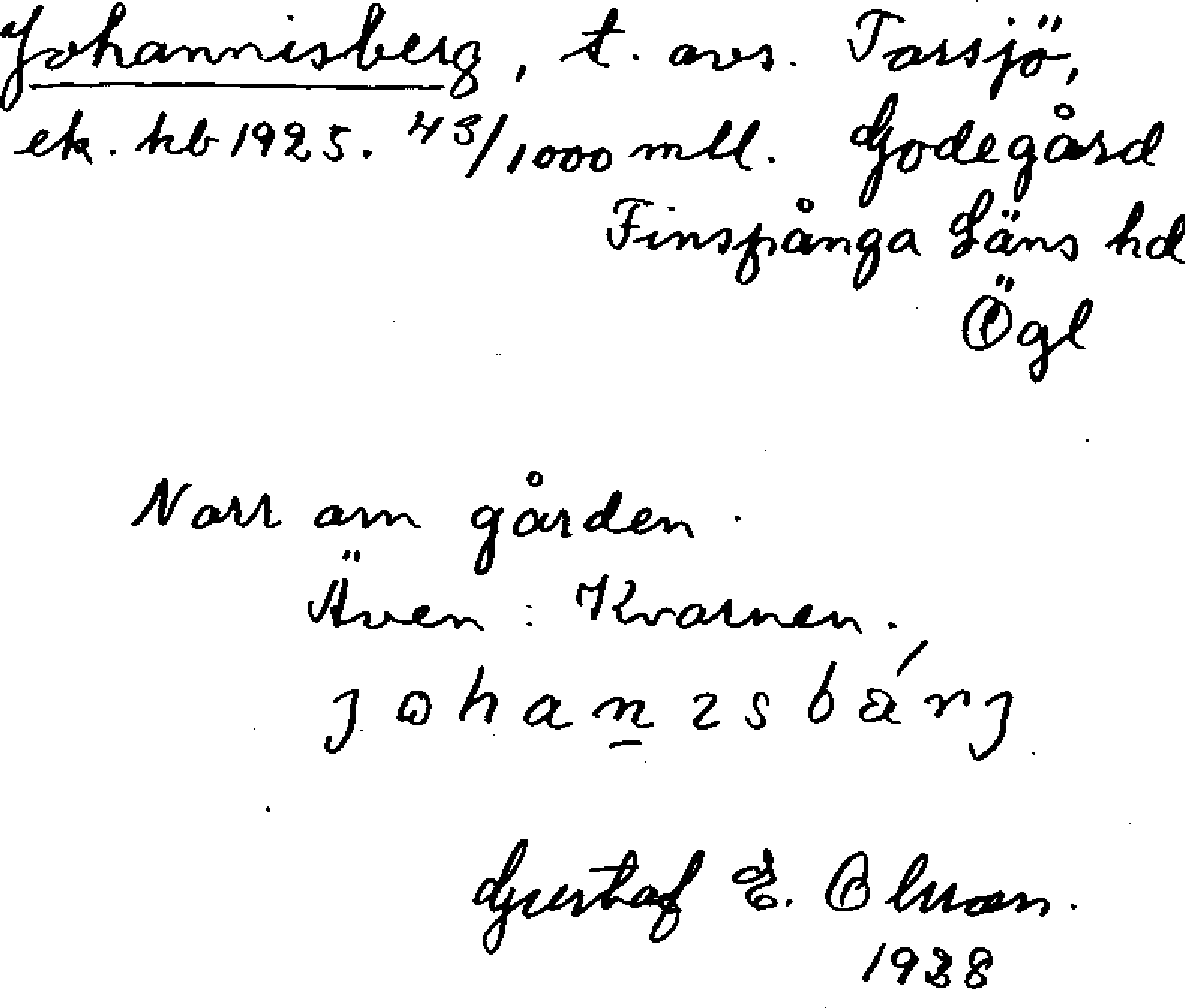 Johannisberg, t. avs. Torsjö,
ek. kb 1925. 43/1000 mtl. Godegård
Finspånga Läns hd
Ögl
Norr om gården.
Även: Kvarnen.
johanısbárj
Gustaf E. Olsson.
1938